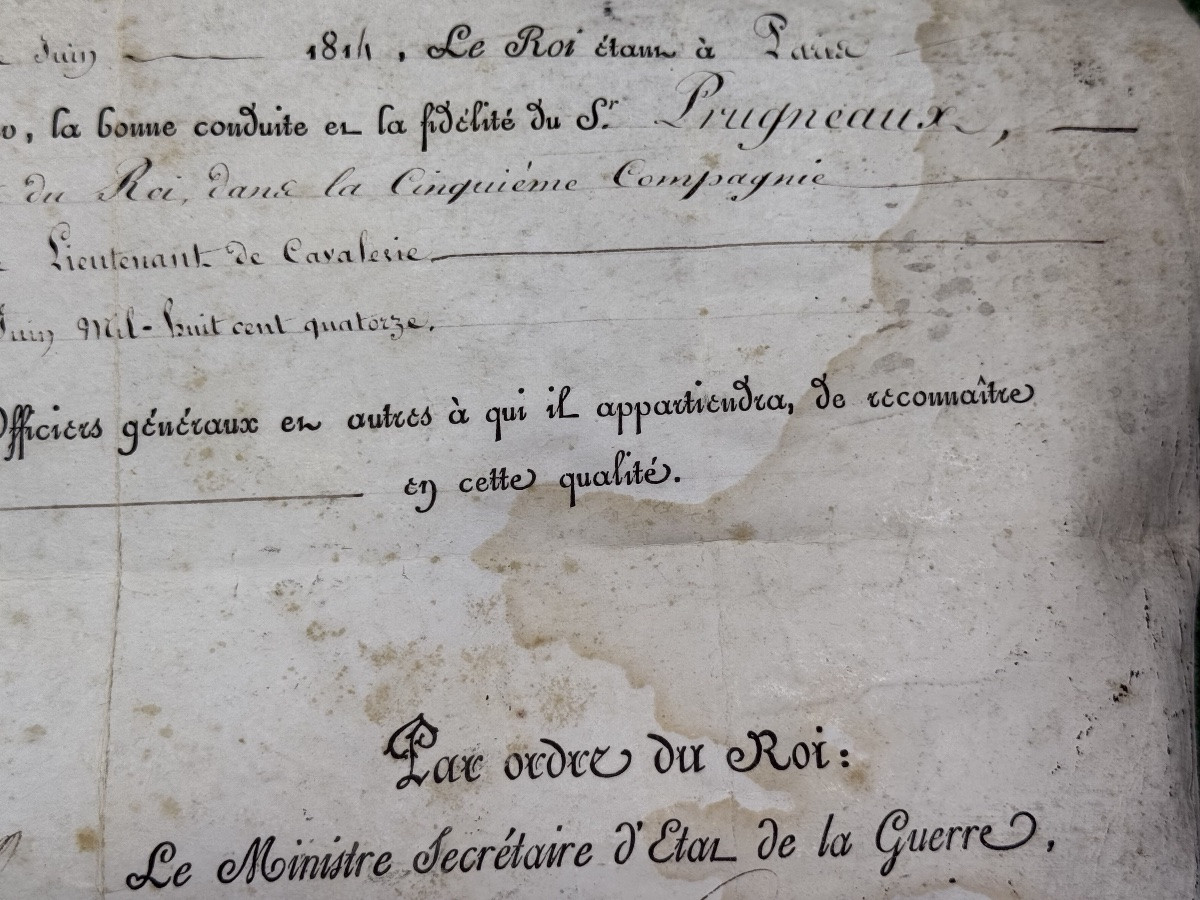 Juin 1814, Le Roi étant à Paris
, la bonne conduite et la fidélité du S.r Prugneaux,
du Roi, dans la Cinquiéme Compagnie
Lieutenant de Cavalerie
Juin Mil-huit cent quatorze.
Officiers généraux et autres à qui il appartiendra, de reconnaître
en cette qualité.
Par ordre du Roi:
Le Ministre Secrétaire d'Etat de la Guerre,